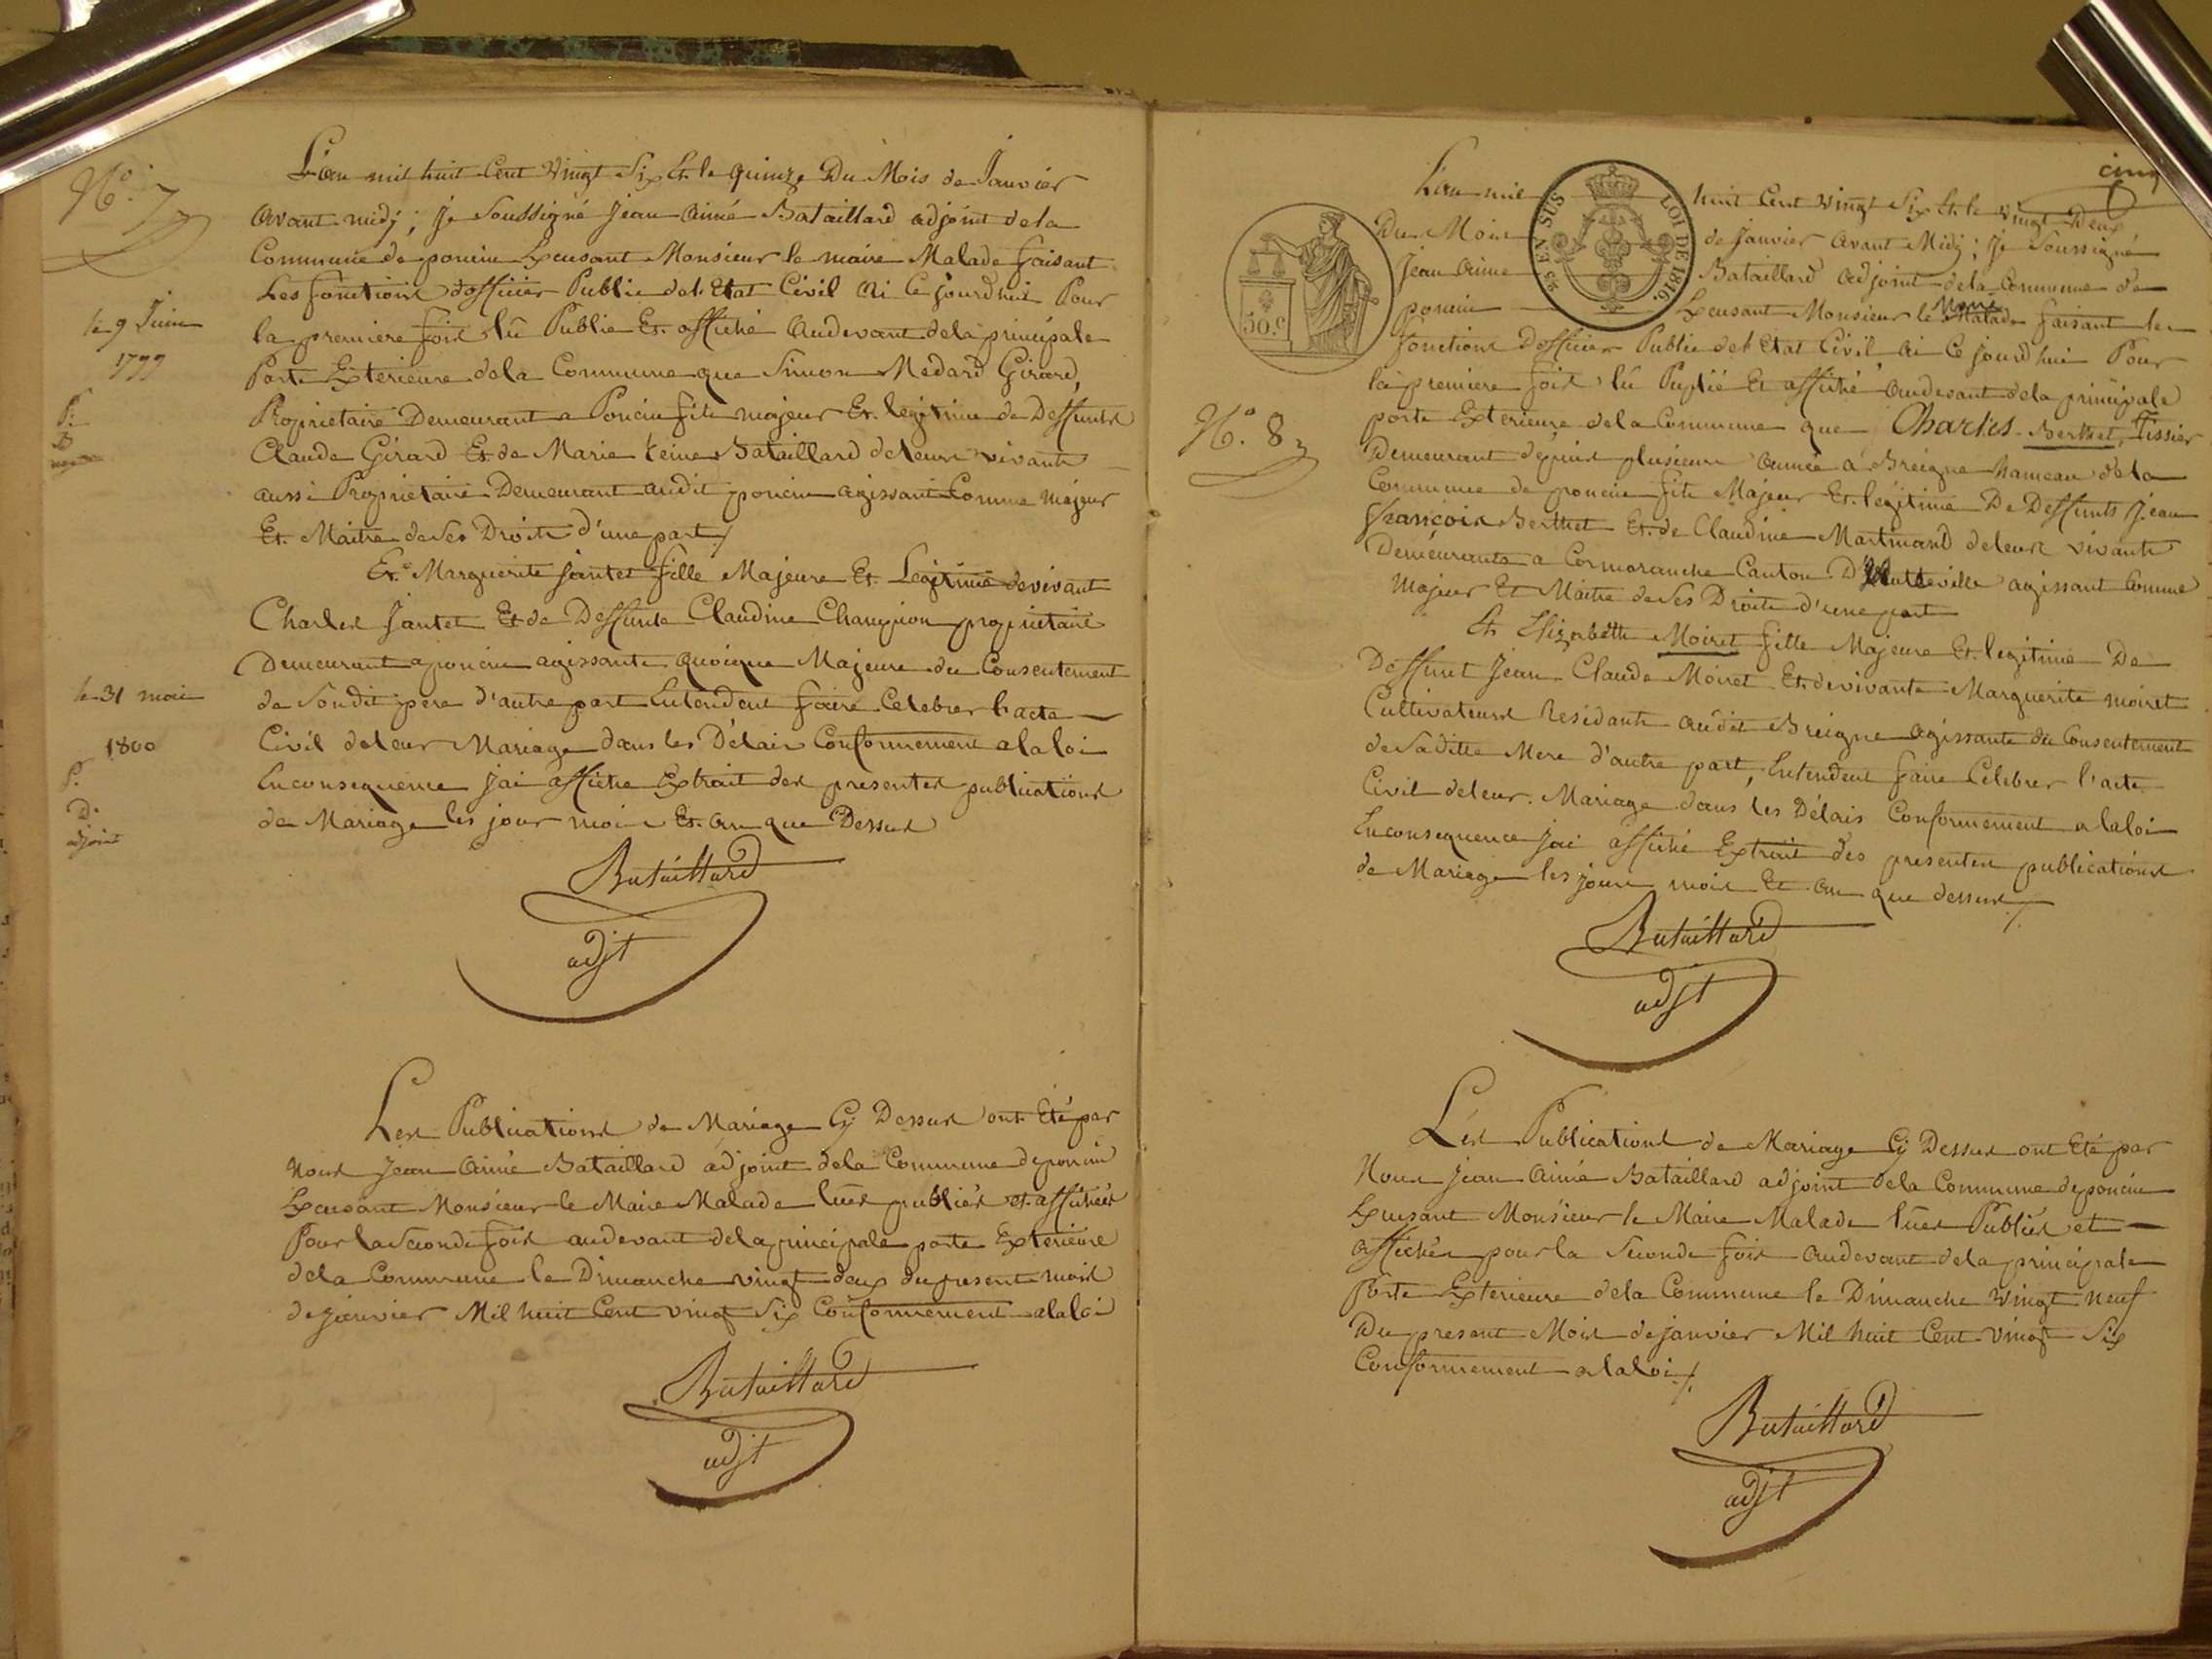 N.° 7
L'an mil huit Cent Vingt Six Et le quinze Du Mois de Janvier
avant midj; je Soussigné Jean Aimé Bataillard adjoint de la
Commune de poncin Excusant Monsieur le maire Malade faisant
Les fonctions d'officier Public de l'Etat Civil ai ce jourd'hui Pour
la premiere fois lû Publié Et affiché audevant dela principale
Porte Exterieure dela Commune que Simon Medard Girard
Proprietaire Demeurant a Poncin fils majeur Et legitime de Deffunts
Claude Girard Et de Marie Bataillard deleurs vivants
aussi Proprietaire Demeurant audit poncin agissant Comme Majeur
Et Maitre de Ses Droits d'une part /
Et Marguerite Jantet fille Majeure Et Legitime devivant
Charles Jantet Et de Deffunte Claudine Champion proprietaire
Demeurant a poncin agissante quoique Majeure du Consentement
de Sondit pere d'autre part Entendent faire Celebrer l'acte
Civil deleur Mariage dans les Délais Conformement alaloi
Enconsequence jai affiché Extrait des presentes publications
de Mariage les jour mois Et an que Dessus
Bataillard
adjt
le 9 Juin
1799
P.
B
le 31 mai
1800
P.
D.
adjoint
Les Publications de Mariage Cy Dessus ont Eté par
Nous Jean Aimé Bataillard adjoint dela Commune deponcin
Excusant Monsieur le Maire Malade lües publiés et affichées
Pour la Seconde fois audevant dela principale porte Exterieure
dela Commune le Dimanche vingt deux du present mois
de janvier Mil huit Cent vingt Six Conformement alaloi
Bataillard
adjt
cinq
50.C
25 EN SUS
LOI DE 1816.
L'an mil huit Cent vingt Six Et le vingt Deux
Du Mois de Janvier avant Midj; je Soussigné
Jean Aimé Bataillard adjoint dela Commune de
poncin Excusant Monsieur le Maire Malade faisant les
fonctions D'officier Public del'Etat Civil ai ce jourd'hui Pour
la premiere fois lû Publié Et affiché audevant dela principale
N.° 8
porte Exterieure dela Commune que Charles Berthet, Tissier
Demeurant depuis plusieurs années á Breigne hameau dela
Commune de poncin fils Majeur Et légitime De Deffunts Jean
François Berthet Et de Claudine Martinand deleurs vivants
Demeurants a Cormoranche Canton D'Hauteville agissant Comme
Majeur Et Maitre de Ses Droits d'une part
Et Elizabeth Moiret fille Majeure Et legitime De
Deffunt Jean Claude Moiret Et devivante Marguerite moiret
Cultivateurs Residants audit Breigne agissante du Consentement
de Saditte Mere d'autre part, Entendent faire Celebrer l'acte
Civil deleur Mariage dans les Délais Conformement alaloi
Enconsequence jai affiché Extrait des presentes publications
de Mariage les jours mois Et an que dessus /
Bataillard
adjt
Les Publications de Mariage Cy Dessus ont Eté par
Nous Jean Aimé Bataillard adjoint dela Commune deponcin
Excusant Monsieur le Maire Malade lües Publiés et
affichés pour la Seconde fois audevant dela principale
Porte Exterieure dela Commune le Dimanche Vingt neuf
Du present Mois de janvier Mil huit Cent Vingt Six
Conformement alaloi /.
Bataillard
adjt